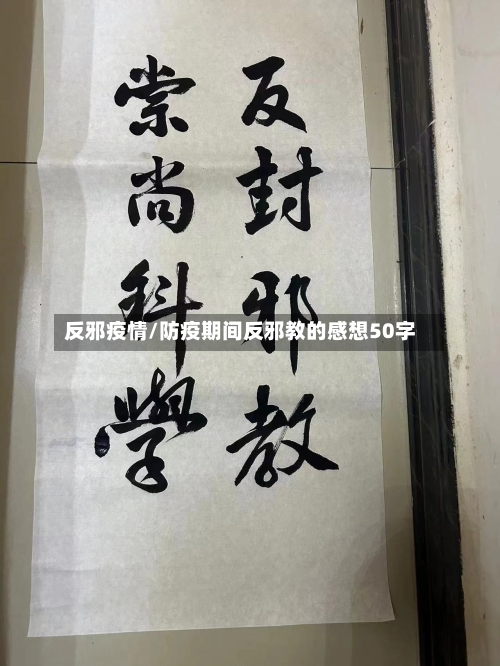 反封邪教
崇尚科學
反邪疫情/防疫期间反邪教的感想50字